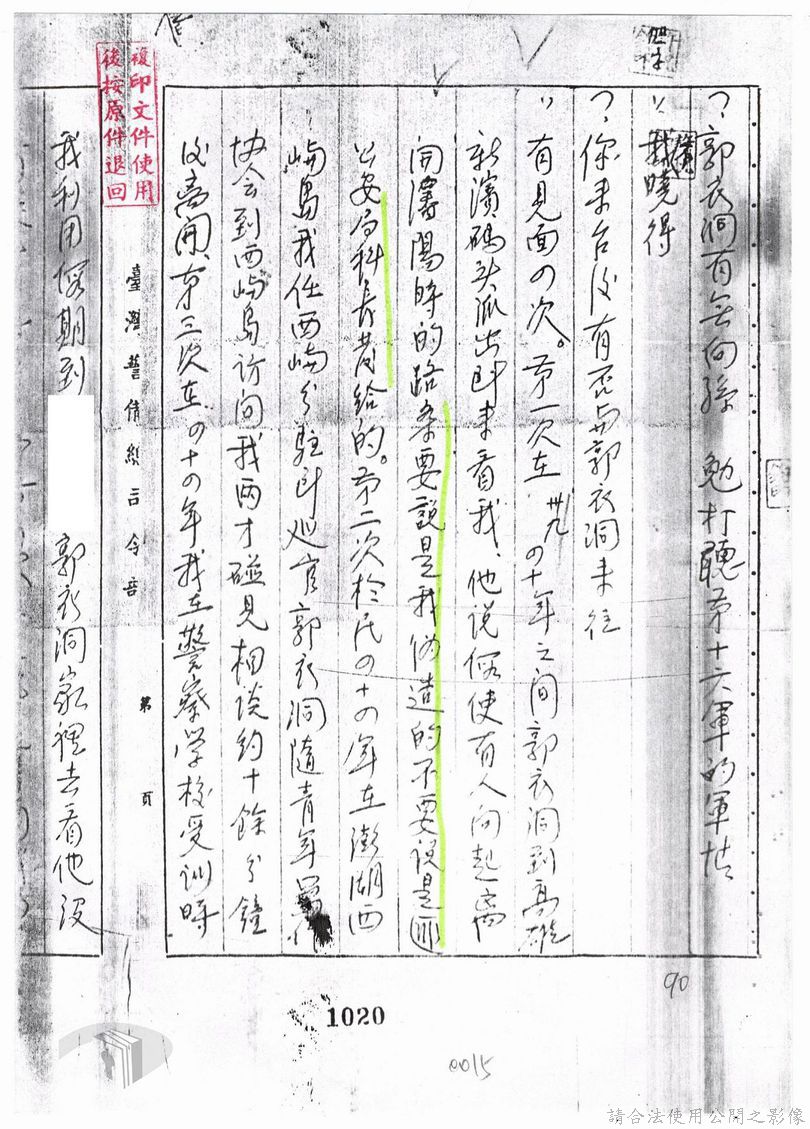 問：郭衣洞有無向孫　勉打聽第十六軍的軍情
：我曉得
問：你來台後有否与郭衣洞來往
：有見面四次。第一次在卅九、四十年之间郭衣洞到高雄
新濱碼头派出所來看我、他说假使有人问起离
開瀋陽時的路条要説是我伪造的不要说是匪
公安局科長黄给的。第二次於民四十四年在澎湖西
嶼島我任西嶼分駐所巡官郭衣洞隨青年寫作
协会到西嶼島访问我两才碰見相谈約十餘分鐘
後离開、第三次在四十四年我在警察学校受训時
臺灣警備總司令部
第　頁
我利用假期到　郭衣洞家裡去看他没
複印文件使用
後按原件退回
90
1020
0015
請合法使用公開之影像